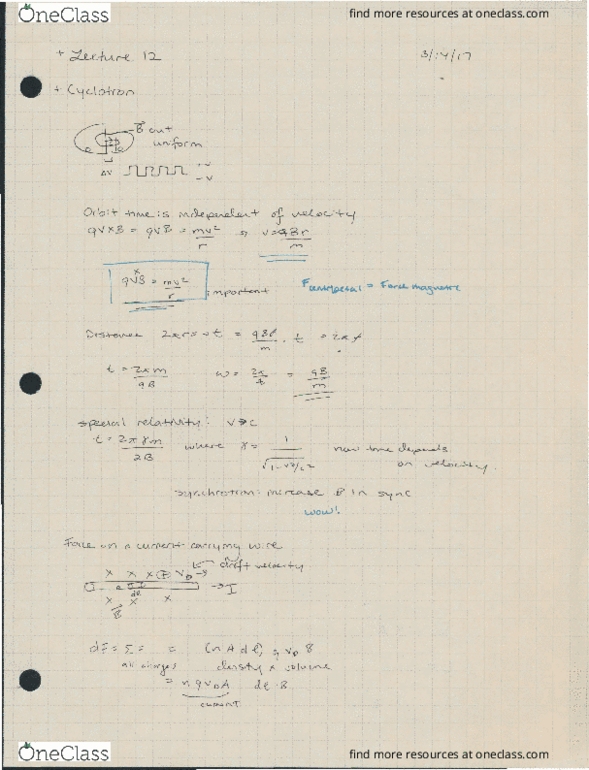 OneClass
find more resources at oneclass.com
+ Lecture 12 3/14/17
+ Cyclotron
B out
uniform
ΔV +V
-V
Orbit time is independent of velocity
qV×B = qVB = mv²/r ⇒ v = qBr/m
qVB = mv²/r important Fcentripetal = Force magnetic
Distance 2πr = v t = qBr/m · t = 2πr
t = 2πm/qB ω = 2π/t = qB/m
special relativity: v→c
t = 2πγm/2B where γ = 1/√1-v²/c² now time depends
on velocity.
synchrotron: increase B in sync
wow!
Force on a current carrying wire
x x x + VD → drift velocity
dl → I
x x x
B
dF = Σ = = (n A dl) q VD B
all charges density x volume
= n q VD A dl · B
current
OneClass
find more resources at oneclass.com